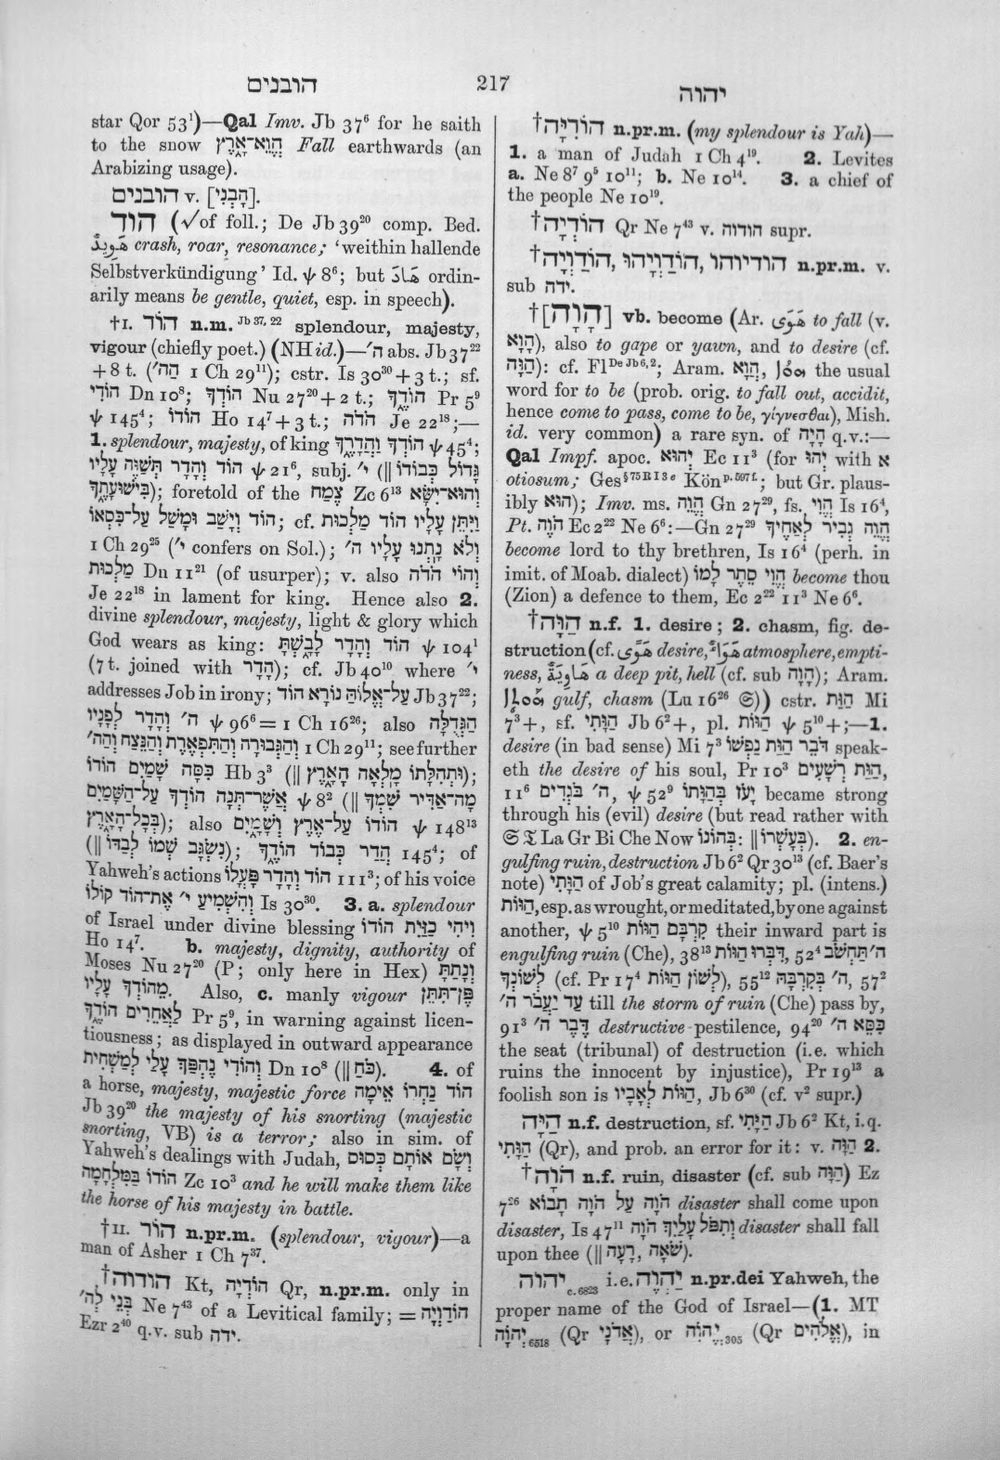 הובנים
217
יהוה
star Qor 53¹)—Qal Imv. Jb 37⁶ for he saith
to the snow הֱוֵא־אָרֶץ Fall earthwards (an
Arabizing usage).
הובנים v. [הָבְנִי].
הוד (√of foll.; De Jb 39²⁰ comp. Bed.
هويد crash, roar, resonance; ‘weithin hallende
Selbstverkündigung’ Id. ψ 8⁶; but هَادَ ordin-
arily means be gentle, quiet, esp. in speech).
†I. הוֹד n.m. Jb 37, 22 splendour, majesty,
vigour (chiefly poet.) (NH id.)—ה׳ abs. Jb 37²²
+ 8 t. (הַה׳ 1 Ch 29¹¹); cstr. Is 30³⁰ + 3 t.; sf.
הוֹדִי Dn 10⁸; הוֹדְךָ Nu 27²⁰ + 2 t.; הוֹדֶ֑ךָ Pr 5⁹
ψ 145⁴; הוֹדוֹ Ho 14⁷ + 3 t.; הֹדֹה Je 22¹⁸;—
1. splendour, majesty, of king הוֹדְךָ וַהֲדָרֶ֑ךָ ψ 45⁴;
הוֹד וְהָדָר תְּשַׁוֶּה עָלָיו ψ 21⁶, subj. י׳ (‖ גָּדוֹל כְּבוֹדוֹ
בִּישׁוּעָתֶ֑ךָ); foretold of the צֶמַח Zc 6¹³ וְהוּא־יִשָּׂא
הוֹד וְיָשַׁב וּמָשַׁל עַל־כִּסְאוֹ; cf. וַיִּתֵּן עָלָיו הוֹד מַלְכוּת
1 Ch 29²⁵ (י׳ confers on Sol.); וְלֹא נָתְנוּ עָלָיו ה׳
מַלְכוּת Dn 11²¹ (of usurper); v. also וְהוֹי הֹדֹה
Je 22¹⁸ in lament for king. Hence also 2.
divine splendour, majesty, light & glory which
God wears as king: הוֹד וְהָדָר לָבָ֑שְׁתָּ ψ 104¹
(7 t. joined with הָדָר); cf. Jb 40¹⁰ where י׳
addresses Job in irony; עַל־אֱלוֹהַּ נוֹרָא הוֹד Jb 37²²;
ה׳ וְהָדָר לְפָנָיו ψ 96⁶ = 1 Ch 16²⁶; also הַגְּדֻלָּה
וְהַגְּבוּרָה וְהַתִּפְאֶרֶת וְהַנֵּצַח וְהַה׳ 1 Ch 29¹¹; see further
כִּסָּה שָׁמַיִם הוֹדוֹ Hb 3³ (‖ וּתְהִלָּתוֹ מָלְאָה הָאָ֑רֶץ);
אֲשֶׁר־תְּנָה הוֹדְךָ עַל־הַשָּׁמַיִם ψ 8² (‖ מָה־אַדִּיר שִׁמְךָ
בְּכָל־הָאָ֑רֶץ); also הוֹדוֹ עַל־אֶרֶץ וְשָׁמָ֑יִם ψ 148¹³
(‖ נִשְׂגָּב שְׁמוֹ לְבַדּוֹ); הֲדַר כְּבוֹד הוֹדֶ֑ךָ 145⁴; of
Yahweh’s actions הוֹד וְהָדָר פָּעֳלוֹ 111³; of his voice
וְהִשְׁמִיעַ י׳ אֶת־הוֹד קוֹלוֹ Is 30³⁰. 3. a. splendour
of Israel under divine blessing וִיהִי כַזַּיִת הוֹדוֹ
Ho 14⁷. b. majesty, dignity, authority of
Moses Nu 27²⁰ (P; only here in Hex) וְנָתַתָּ֫
מֵהוֹדְךָ עָלָיו. Also, c. manly vigour פֶּן־תִּתֵּן
לַאֲחֵרִים הוֹדֶ֑ךָ Pr 5⁹, in warning against licen-
tiousness; as displayed in outward appearance
וְהוֹדִי נֶהְפַּךְ עָלַי לְמַשְׁחִית Dn 10⁸ (‖ כֹּחַ). 4. of
a horse, majesty, majestic force הוֹד נַחְרוֹ אֵימָה
Jb 39²⁰ the majesty of his snorting (majestic
snorting, VB) is a terror; also in sim. of
Yahweh’s dealings with Judah, וְשָׂם אוֹתָם כְּסוּס
הוֹדוֹ בַּמִּלְחָמָה Zc 10³ and he will make them like
the horse of his majesty in battle.
†II. הוֹד n.pr.m. (splendour, vigour)—a
man of Asher 1 Ch 7³⁷.
†הודוה Kt, הוֹדְיָה Qr, n.pr.m. only in
בְּנֵי לְה׳ Ne 7⁴³ of a Levitical family; = הוֹדַוְיָה
Ezr 2⁴⁰ q.v. sub ידה.
†הוֹדִיָּה n.pr.m. (my splendour is Yah)—
1. a man of Judah 1 Ch 4¹⁹. 2. Levites
a. Ne 8⁷ 9⁵ 10¹¹; b. Ne 10¹⁴. 3. a chief of
the people Ne 10¹⁹.
†הוֹדְיָה Qr Ne 7⁴³ v. הודוה supr.
†הוֹדַוְיָה, הוֹדַוְיָהוּ, הודיוהו n.pr.m. v.
sub ידה.
†[הָוָה] vb. become (Ar. هَوَى to fall (v.
הָוָא), also to gape or yawn, and to desire (cf.
הַוָּה): cf. Fl De Jb 6, 2; Aram. הֲוָא, ܗܘܐ the usual
word for to be (prob. orig. to fall out, accidit,
hence come to pass, come to be, γίγνεσθαι), Mish.
id. very common) a rare syn. of הָיָה q.v.:—
Qal Impf. apoc. יְהוּא Ec 11³ (for יְהוּ with א
otiosum; Ges §75 R 1 3 e Kön p. 597 f.; but Gr. plaus-
ibly הוּא); Imv. ms. הֱוֵה Gn 27²⁹, fs. הֱוִי Is 16⁴,
Pt. הֹוֶה Ec 2²² Ne 6⁶:—Gn 27²⁹ הֱוֵה גְבִיר לְאַחֶיךָ
become lord to thy brethren, Is 16⁴ (perh. in
imit. of Moab. dialect) הֱוִי סֵתֶר לָמוֹ become thou
(Zion) a defence to them, Ec 2²² 11³ Ne 6⁶.
†הַוָּה n.f. 1. desire; 2. chasm, fig. de-
struction (cf. هَوًى desire, هَوَاءٌ atmosphere, empti-
ness, هَاوِيَةٌ a deep pit, hell (cf. sub הָוָה); Aram.
gulf, chasm (Lu 16²⁶ 𝔖)) cstr. הַוַּת Mi
7³ +, sf. הַוָּתִי Jb 6² +, pl. הַוּוֹת ψ 5¹⁰ +;—1.
desire (in bad sense) Mi 7³ דֹּבֵר הַוַּת נַפְשׁוֹ speak-
eth the desire of his soul, Pr 10³ הַוַּת רְשָׁעִים,
11⁶ ה׳ בֹּגְדִים, ψ 52⁹ יָעֹז בְּהַוָּתוֹ became strong
through his (evil) desire (but read rather with
𝔖 𝔗 La Gr Bi Che Now בְּהוֹנוֹ: ‖ בְּעָשְׁרוֹ). 2. en-
gulfing ruin, destruction Jb 6² Qr 30¹³ (cf. Baer’s
note) הַוָּתִי of Job’s great calamity; pl. (intens.)
הַוּוֹת, esp. as wrought, or meditated, by one against
another, ψ 5¹⁰ קִרְבָּם הַוּוֹת their inward part is
engulfing ruin (Che), 38¹³ דִּבְּרוּ הַוּוֹת, 52⁴ ה׳ תַּחְשֹׁב
לְשׁוֹנֶךָ (cf. Pr 17⁴ לְשׁוֹן הַוּוֹת), 55¹² ה׳ בְּקִרְבָּהּ, 57²
עַד יַעֲבֹר ה׳ till the storm of ruin (Che) pass by,
91³ דֶּבֶר ה׳ destructive pestilence, 94²⁰ כִּסֵּא ה׳
the seat (tribunal) of destruction (i.e. which
ruins the innocent by injustice), Pr 19¹³ a
foolish son is הַוּוֹת לְאָבִיו, Jb 6³⁰ (cf. v² supr.)
הַיָּה n.f. destruction, sf. הַיָּתִי Jb 6² Kt, i.q.
הַוָּתִי (Qr), and prob. an error for it: v. הַוָּה 2.
†הֹוָה n.f. ruin, disaster (cf. sub הַוָּה) Ez
7²⁶ הֹוָה עַל הֹוָה תָּבוֹא disaster shall come upon
disaster, Is 47¹¹ וְתִפֹּל עָלַיִךְ הֹוָה disaster shall fall
upon thee (‖ שֹׁאָה, רָעָה).
יהוה c. 6823 i.e. יַהְוֶה n.pr.dei Yahweh, the
proper name of the God of Israel—(1. MT
יְהוָֹה 6518 (Qr אֲדֹנָי), or יֱהוִֹה 305 (Qr אֱלֹהִים), in